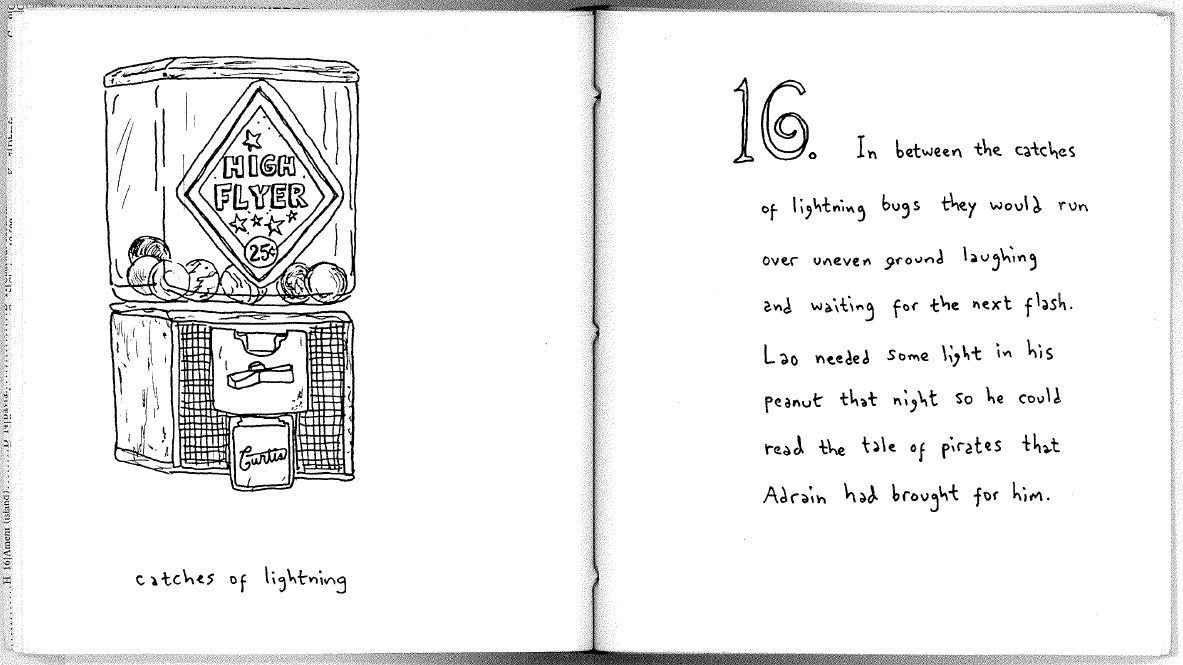 HIGH
FLYER
25¢
Curtis
catches of lightning
16. In between the catches
of lightning bugs they would run
over uneven ground laughing
and waiting for the next flash.
Lao needed some light in his
peanut that night so he could
read the tale of pirates that
Adrain had brought for him.
H 16|Amem (island)